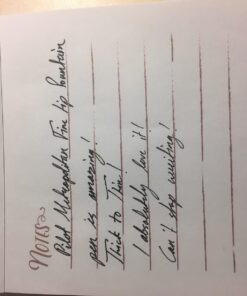 NOTES
Pilot Metropolitan Fine tip fountain
pen is amazing!
Thick to Thin!
I absolutely love it!
Can't stop writing!